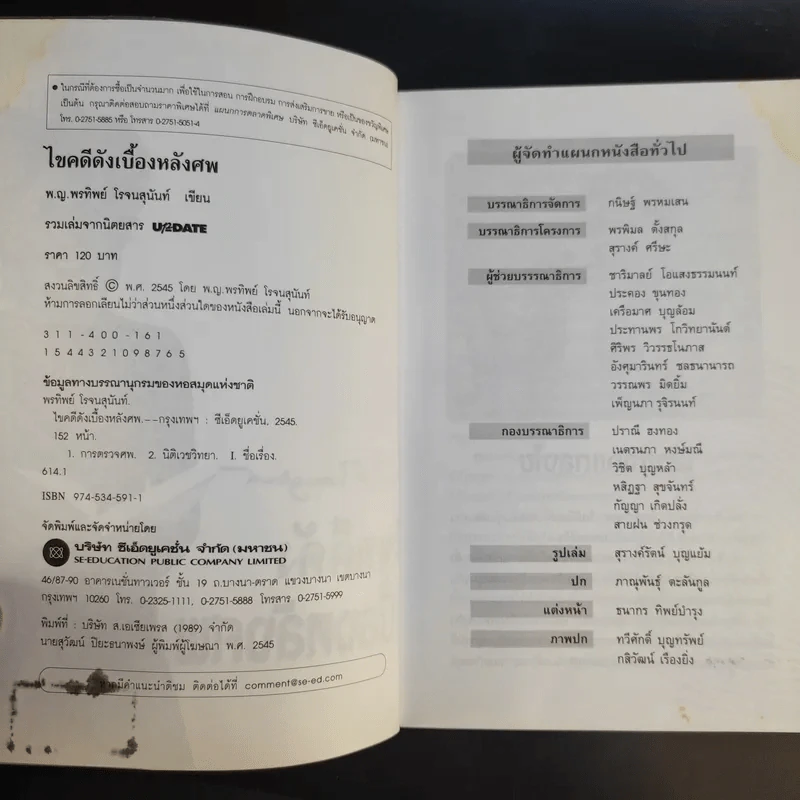 ● ในกรณีที่ต้องการซื้อเป็นจำนวนมาก เพื่อใช้ในการสอน การฝึกอบรม การส่งเสริมการขาย หรือเป็นของขวัญพิเศษ
เป็นต้น กรุณาติดต่อสอบถามราคาพิเศษได้ที่ แผนกการตลาดพิเศษ บริษัท ซีเอ็ดยูเคชั่น จำกัด (มหาชน)
โทร. 0-2751-5885 หรือ โทรสาร 0-2751-5051-4
ไขคดีดังเบื้องหลังศพ
พ.ญ.พรทิพย์ โรจนสุนันท์ เขียน
รวมเล่มจากนิตยสาร U/2DATE
ราคา 120 บาท
สงวนลิขสิทธิ์ © พ.ศ. 2545 โดย พ.ญ.พรทิพย์ โรจนสุนันท์
ห้ามการลอกเลียนไม่ว่าส่วนหนึ่งส่วนใดของหนังสือเล่มนี้ นอกจากจะได้รับอนุญาต
311-400-161
1544321098765
ข้อมูลทางบรรณานุกรมของหอสมุดแห่งชาติ
พรทิพย์ โรจนสุนันท์.
ไขคดีดังเบื้องหลังศพ.--กรุงเทพฯ : ซีเอ็ดยูเคชั่น, 2545.
152 หน้า.
1. การตรวจศพ. 2. นิติเวชวิทยา. I. ชื่อเรื่อง.
614.1
ISBN 974-534-591-1
จัดพิมพ์และจัดจำหน่ายโดย
บริษัท ซีเอ็ดยูเคชั่น จำกัด (มหาชน)
SE-EDUCATION PUBLIC COMPANY LIMITED
46/87-90 อาคารเนชั่นทาวเวอร์ ชั้น 19 ถ.บางนา-ตราด แขวงบางนา เขตบางนา
กรุงเทพฯ 10260 โทร. 0-2325-1111, 0-2751-5888 โทรสาร 0-2751-5999
พิมพ์ที่ : บริษัท ส.เอเซียเพรส (1989) จำกัด
นายสุวัฒน์ ปิยะธนาพงษ์ ผู้พิมพ์ผู้โฆษณา พ.ศ. 2545
หากมีคำแนะนำติชม ติดต่อได้ที่ comment@se-ed.com
ผู้จัดทำแผนกหนังสือทั่วไป
บรรณาธิการจัดการ กนิษฐ์ พรหมเสน
บรรณาธิการโครงการ พรพิมล ตั้งสกุล
สุรางค์ ศรีษะ
ผู้ช่วยบรรรณาธิการ ชาริมาลย์ โอแสงธรรมนนท์
ประคอง ขุนทอง
เครือมาศ บุญล้อม
ประทานพร โกวิทยานันต์
ศิริพร วิวรรธโนภาส
อังศุมารินทร์ ชลธนานารถ
วรรณพร มิดยิ้ม
เพ็ญนภา รุจิรนนท์
กองบรรณาธิการ ปราณี ธงทอง
เนตรนภา หงษ์มณี
วิชิต บุญหล้า
หสิฏฐา สุขจันทร์
กัญญา เกิดปลั่ง
สายฝน ช่วงกรุด
รูปเล่ม สุรางค์รัตน์ บุญแย้ม
ปก ภาณุพันธุ์ ตะลันกูล
แต่งหน้า ธนากร ทิพย์บำรุง
ภาพปก ทวีศักดิ์ บุญทรัพย์
กสิวัฒน์ เรืองยิ่ง